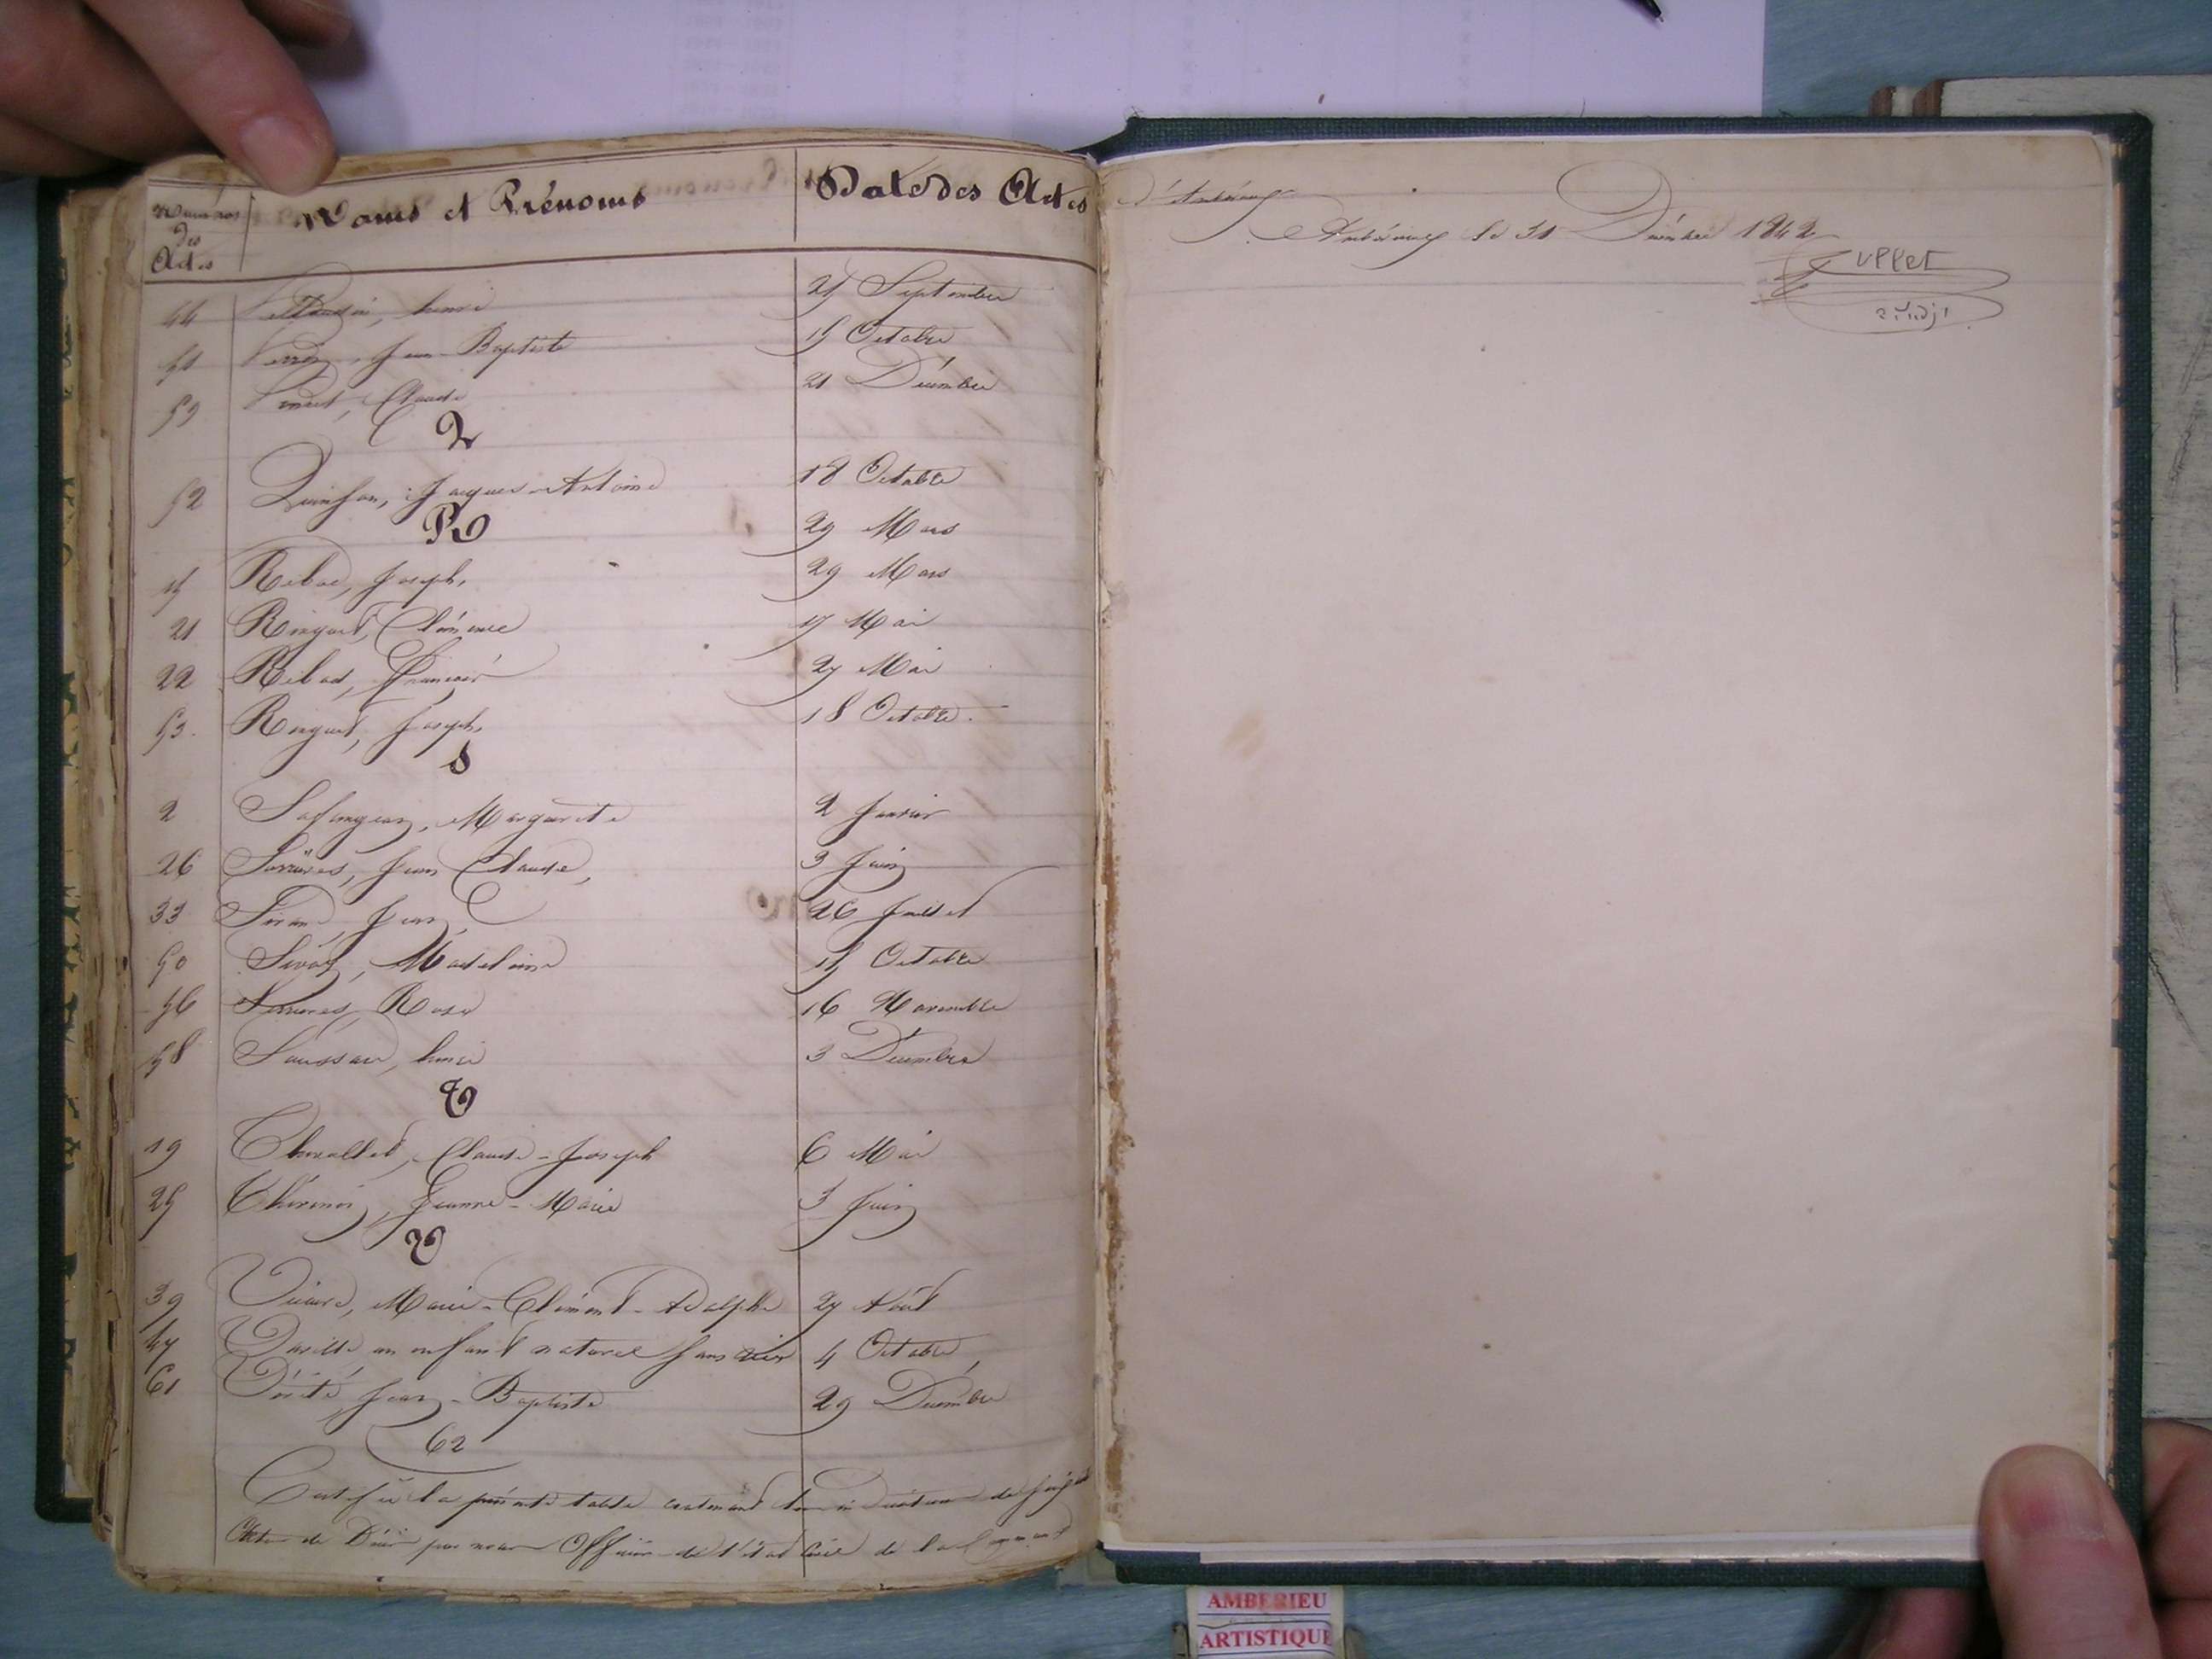 Numéros des Actes
Noms et Prénoms
Date des Actes
44 henri 25 Septembre
51 Jean-Baptiste 15 Octobre
59 Claude 21 Décembre
Q
52 Quinson, Jacques-Antoine 18 Octobre
R
29 Mars
15 Ribod, Joseph, 29 Mars
21 Ringuet, Clémence 17 Mai
22 Ribod, François 27 Mai
53. Ringuet, Joseph, 18 Octobre.
S
2 Marguerite 2 Janvier
26 Serrières, Jean Claude, 3 Juin
33 Jean, 26 Juillet
50 Sivoz, Madeleine 15 Octobre
56 Serrières, Rose 16 Novembre
58 3 Décembre
T
19 Thevollet, Claude-Joseph 6 Mai
25 Thévenin, Jeanne-Marie 3 Juin
V
39 Vicaire, Marie-Clément-Adolphe 27 Août
47 un enfant naturel 4 Octobre,
61 Vérité, Jean-Baptiste 29 Décembre
62
Certifié la présente table contenant
Actes de Décès par nous Officier de l'état Civil de la
d'Ambérieux
Ambérieux le 31 Décembre 1842
adj.
AMBERIEU
ARTISTIQUE